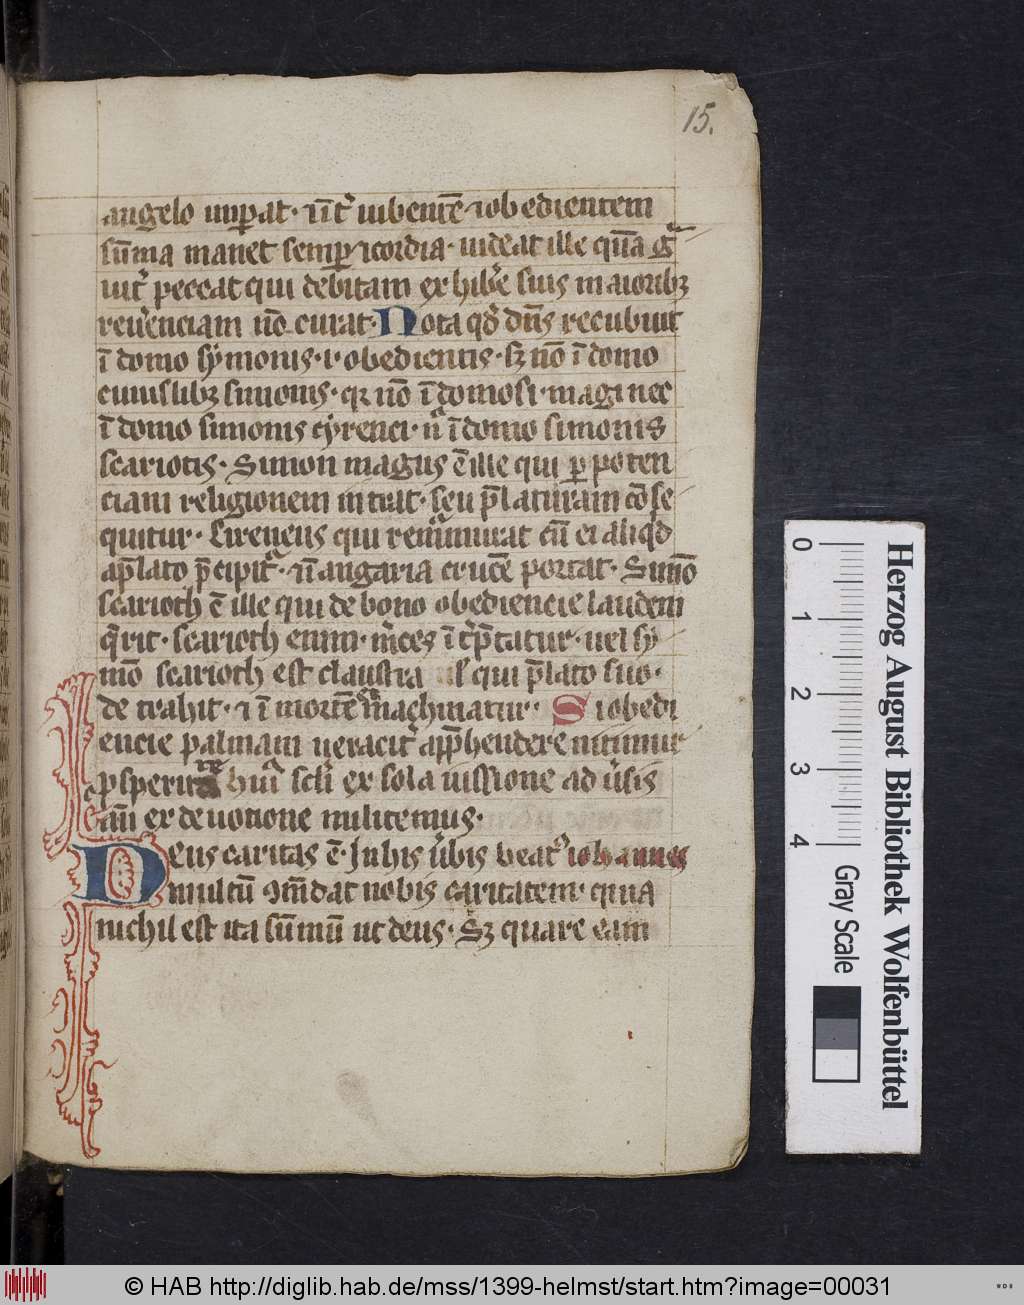 15.
angelo imꝑat· n̄t᷑ iubentē ⁊ obedientem
sūma manet semꝑ ꝯcordia· uideat ille quā gͣ
uit᷑ peccat qui debitam exhibe᷑e suis maioribꝫ
reu᷑enciam nō curat· Nota qđ dn̄s recubuit
ī domo sẏmonis· i· obedientis· sꝫ nō ī domo
cuiuslibꝫ simonis· qꝛ nō ī domo si· magi nec
ī domo simonis cẏrenei· nͨ ī domo simonis
scariotis· Simon magus ē ille qui ꝑ poten
ciam religionem intrat· seu p̄laturam cō se
quitur· Cireneus qui remͣmurat cū ei aliqđ
ap̄lato p̄cipitͣ· ⁊ ī angaria crucē portat· Simō
scarioth ē ille qui de bono obediencie laudem
q̄rit· scarioth enim· m᷑ces īt᷑p̄tatur· uel sẏ
mō scarioth est claustralis qui p̄lato suo·
de trahit· ⁊ ī mortē mͣchinatur· Si obedi
encie palmam ueracit᷑ app̄hendere nitimur
ꝓsperita hui᷑ scl̄i ex sola uissione ad u᷑sis
eciam ex deuotione militemus·
Deus caritas ē· In his u᷑bis beatꝰ iohannes
multū ꝯm̄dat nobis caritatem· quia
nichil est ita sūmū ut deus· Sꝫ quare eam
0
1
2
3
4
Gray Scale
Herzog August Bibliothek Wolfenbüttel
© HAB http://diglib.hab.de/mss/1399-helmst/start.htm?image=00031